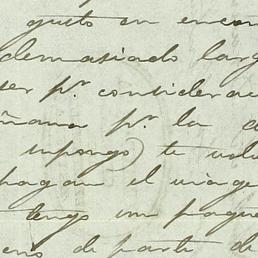 gusto en encon
demasiado larg
ser pr. considerac
ñana pr. la
supongo) te
pagan el viage
tengo un paque
de parte de